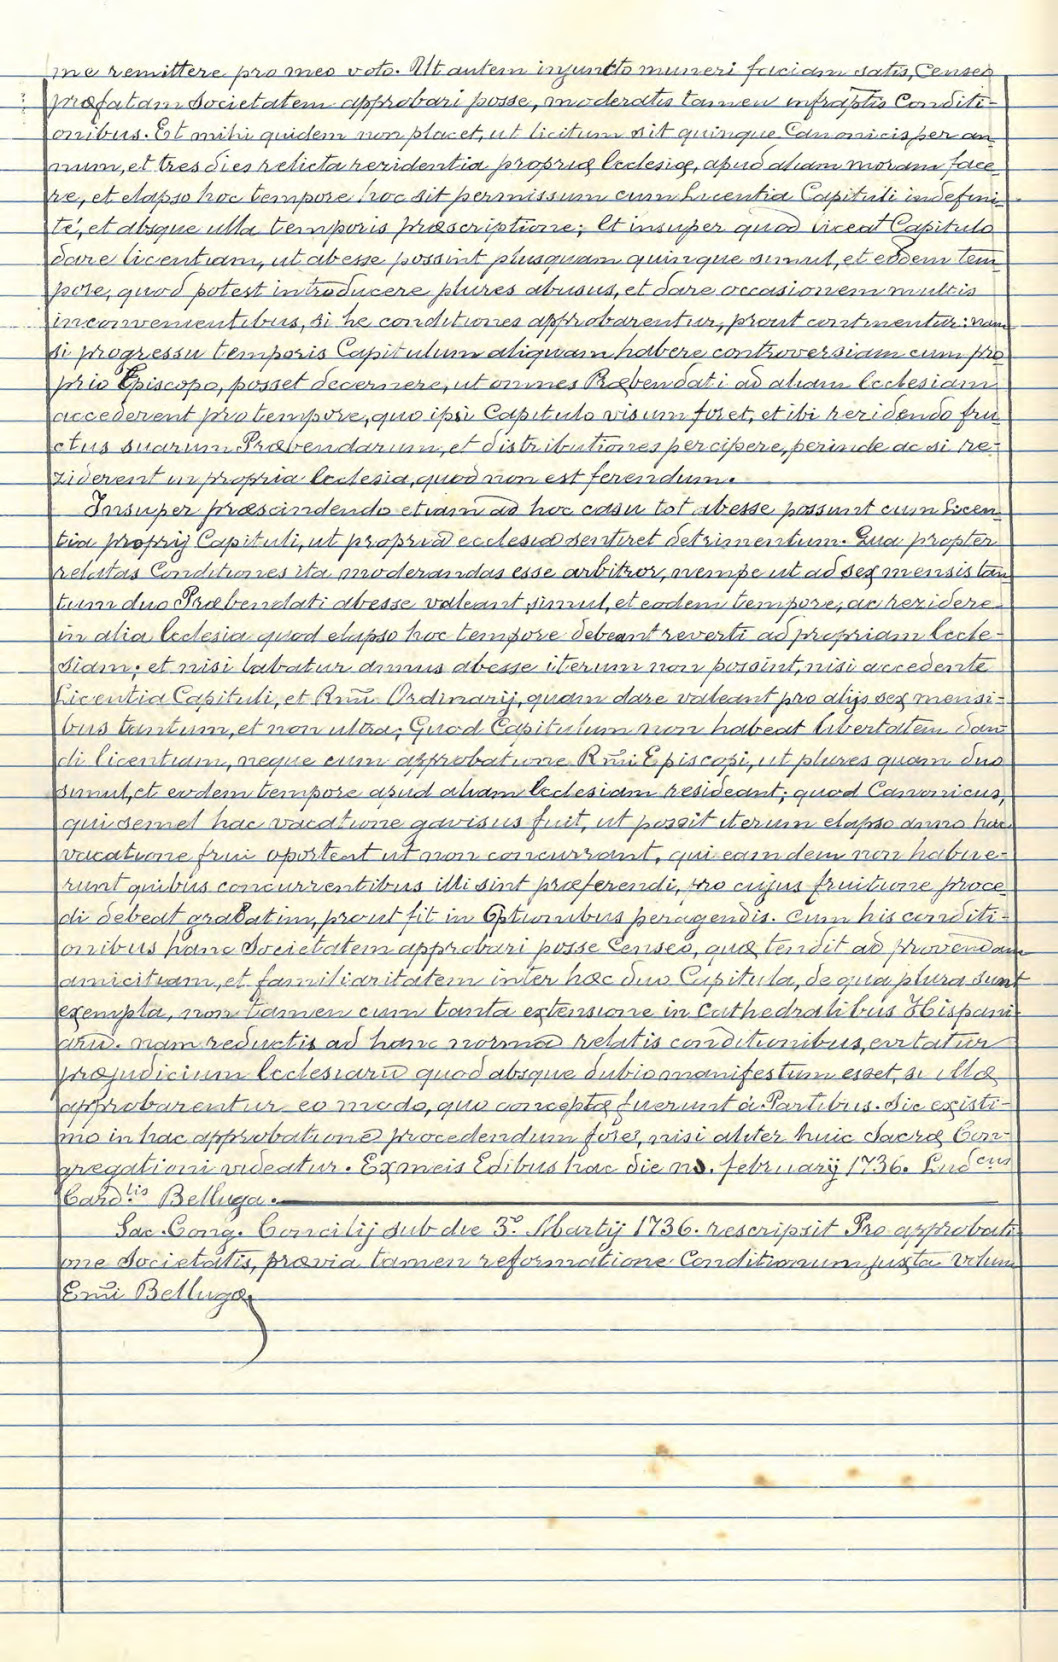 me remittere pro meo voto. Ut autem injuncto muneri faciam satis, Censeo
præfatam Societatem approbari posse, moderatis tamen infraptis Conditi-
onibus. Et mihi quidem non placet, ut licitum sit quinque Canonicis per an-
num, et tres dies relicta rezidentia propriæ Ecclesiæ, apud aliam moram face-
re, et elapso hoc tempore hoc sit permissum cum Licentia Capituli indefini-
té, et absque ulla temporis præscriptione; Et insuper quod liceat Capitulo
dare licentiam, ut abesse possint plusquam quinque simul, et eodem tem-
pore, quod potest introducere plures abusus, et dare occasionem multis
inconvenientibus, si he conditiones approbarentur, prout continentur: nam
si progressu temporis Capitulum aliquam habere controversiam cum pro-
prio Episcopo, posset decernere, ut omnes Præbendati ad aliam Ecclesiam
accederent pro tempore, quo ipsi Capitulo visum foret, et ibi rezidendo fru-
ctus suarum Præbendarum, et distributiones percipere, perinde ac si re-
ziderent in propria Ecclesia, quod non est ferendum.
Insuper præscindendo etiam ad hoc casu tot abesse possunt cum Licen-
tia proprij Capituli, ut propria ecclesia sentiret detrimentum. Qua propter
relatas Conditiones ita moderandas esse arbitror, nempe ut ad sex mensis tan-
tum duo Præbendati abesse valeant simul, et eodem tempore, ac rezidere
in alia Ecclesia quod elapso hoc tempore debeant reverti ad propriam Eccle-
siam; et nisi labatur annus abesse iterum non possint, nisi accedente
Licentia Capituli, et Rmi Ordinarij, quam dare valeant pro alijs sex mensi-
bus tantum, et non ultra; Quod Capitulum non habeat libertatem dan-
di licentiam, neque cum approbatione Rmi Episcopi, ut plures quam duo
simul, et eodem tempore apud aliam Ecclesiam resideant; quod Canonicus,
qui semel hac vacatione gavisus fuit, ut possit iterum elapso anno hac
vacatione frui oportent ut non concurrant, qui eamdem non habue-
runt quibus concurrentibus illi sint præferendi, pro cujus fruitione proce-
di debeat gradatim, prout fit in Optionibus peragendis. Cum his conditi-
onibus hanc Societatem approbari posse Censeo, quæ tendit ad provendam
amicitiam, et familiaritatem inter hæc duo Capitula, de qua plura sunt
exempla, non tamen cum tanta extensione in Cathedralibus Hispani-
arū. nam reductis ad hanc normā relatis conditionibus, evitatur
præjudicium Ecclesiarū quod absque dubio manifestum esset, si illæ
approbarentur eo modo, quo conceptæ fuerunt á Partibus. Sic existi-
mo in hac approbatione procedendum fore, nisi aliter huic Sacræ Con-
gregationi videatur. Ex meis Edibus hac die . februarij 1736. Ludcus
Cardlis Belluga.
Sac. Cong. Concilij sub die 3ª Martij 1736. rescripsit Pro approbati-
one Societatis, prævia tamen reformatione Conditionum juxta votum
Emi Bellugæ